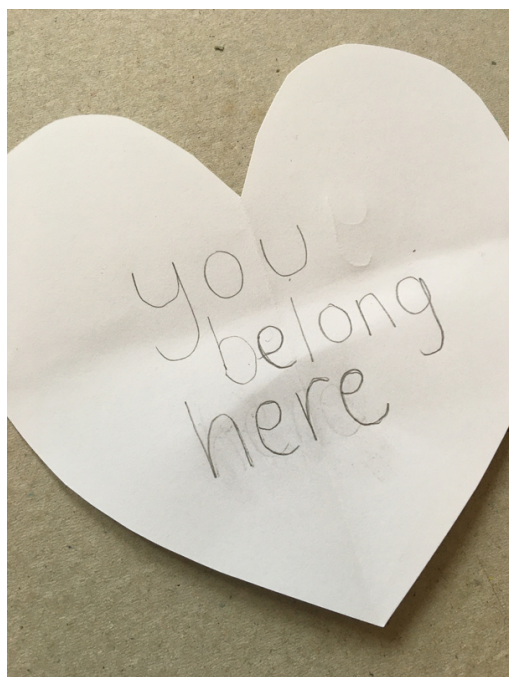 you
belong
here